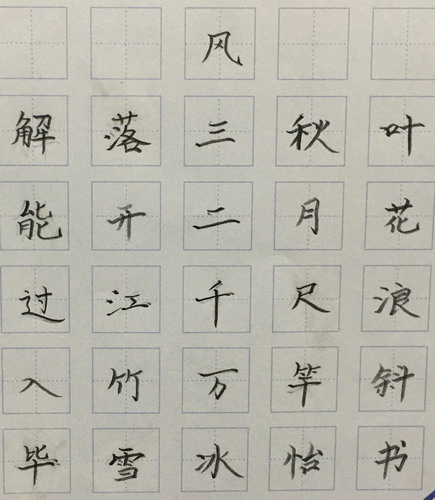 风
解落三秋叶
能开二月花
过江千尺浪
入竹万竿斜
毕雪冰怡书